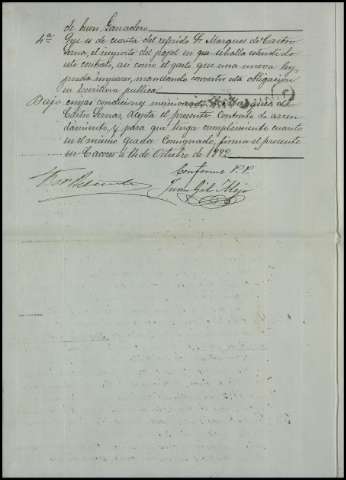 de buen Ganadero
4ª Que es de cuenta del referido Sr Marques de Castro
Serna, el importe del papel en que se halla estendido
este contrato, así como el gasto que una nueva ley
pueda imponer, mandando convertir esta obligacion
en Escritura publica
Bajo cuyas condiciones
Castro Serna, acepta el presente Contrato de arren-
damiento, y para que tenga cumplimiento cuanto
en el mismo queda Consignado, firma el presente
en Caceres a 14 de Octubre de
Conforme P.P.
Juan Gil